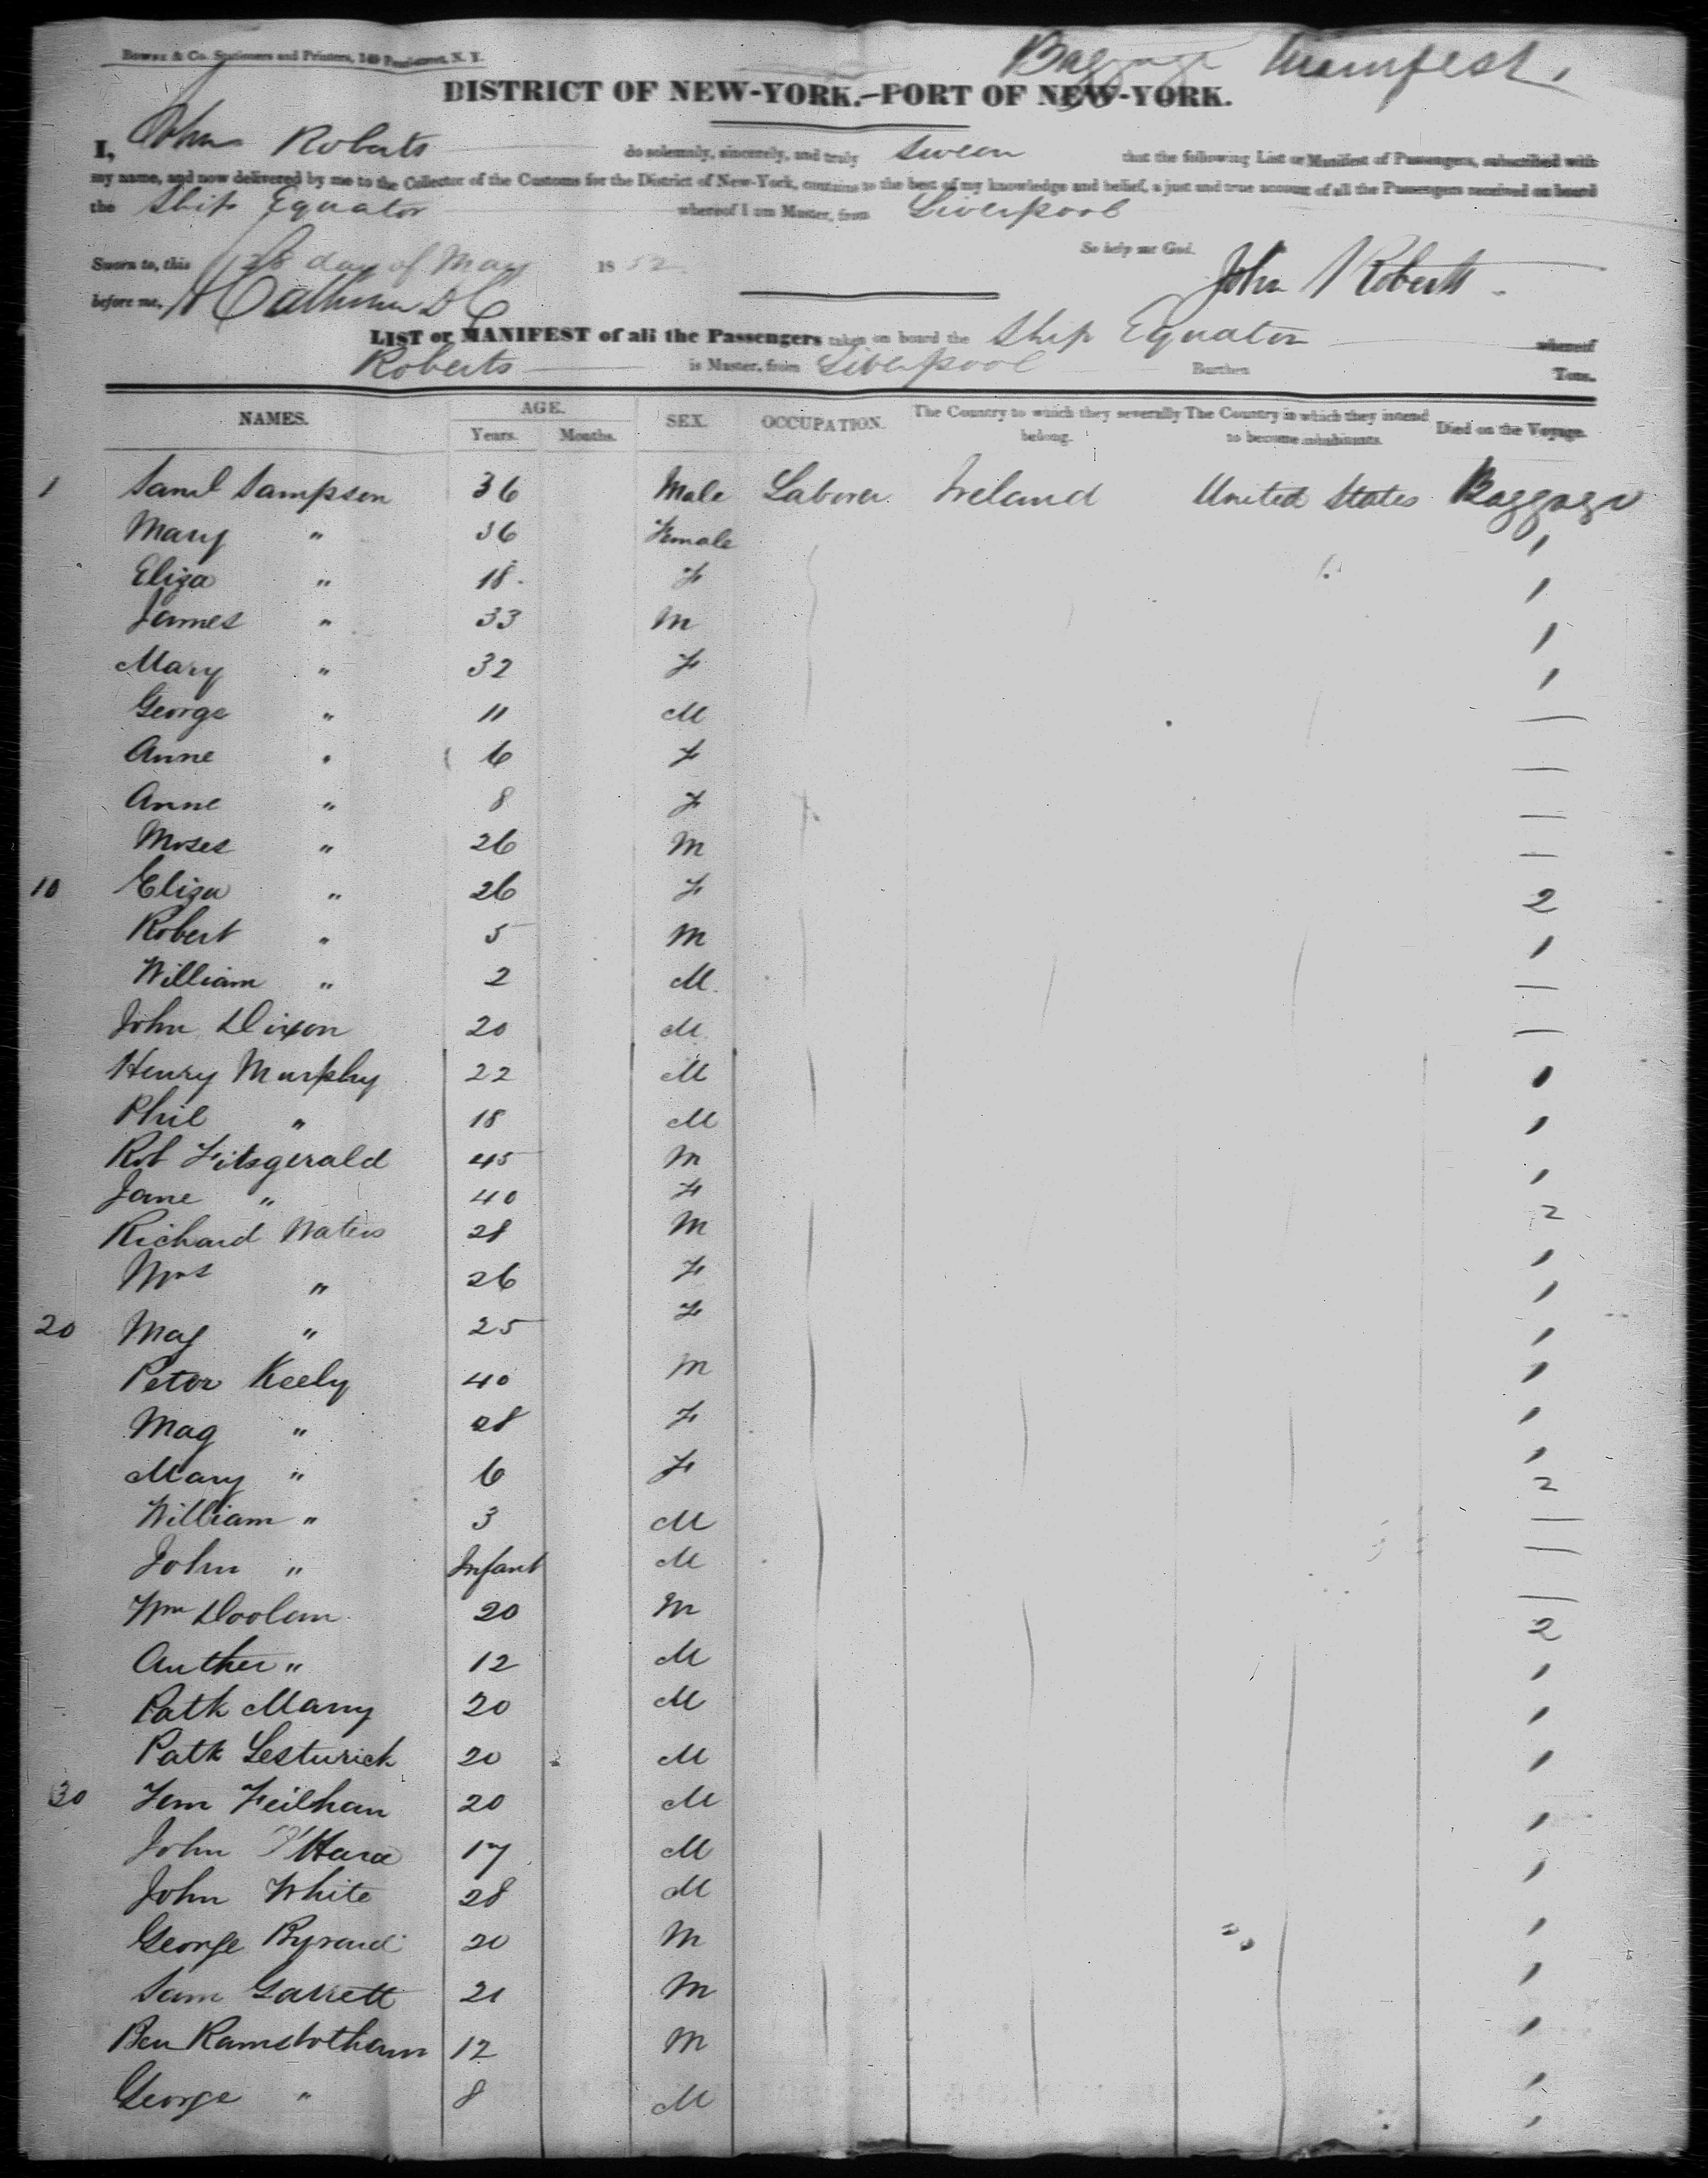 Bowne & Co. Stationers and Printers, 149 Pearl-street, N. Y.
Baggage Manifest,
DISTRICT OF NEW-YORK.—PORT OF NEW-YORK.
I, John Roberts do solemnly, sincerely, and truly swear that the following List or Manifest of Passengers, subscribed with
my name, and now delivered by me to the Collector of the Customs for the District of New-York, contains to the best of my knowledge and belief, a just and true account of all the Passengers received on board
the Ship Equator whereof I am Master, from Liverpool
So help me God.
Sworn to, this 28 day of May 1852
John Roberts
before me,
LIST or MANIFEST of all the Passengers taken on board the Ship Equator whereof
Roberts is Master, from Liverpool Burthen Tons.
NAMES. AGE. SEX. OCCUPATION. The Country to which they severally belong. The Country in which they intend to become inhabitants. Died on the Voyage.
Years. Months.
1 Saml Sampson 36 Male Laborer Ireland United States Baggage
Mary " 36 Female 1
Eliza " 18 F 1
James " 33 M 1
Mary " 32 F 1
George " 11 M —
Anne " 6 F —
Anne " 8 F —
Moses " 26 M —
10 Eliza " 26 F 2
Robert " 5 M 1
William " 2 M —
John Dixon 20 M —
Henry Murphy 22 M 1
Phil " 18 M 1
Rob Fitsgerald 45 M 1
Jane " 40 F 2
Richard Waters 28 M 1
Mrs " 26 F 1
20 Mag " 25 F 1
Peter Keely 40 M 1
Mag " 28 F 1
Mary " 6 F 1 2
William " 3 M —
John " Infant M —
Wm Doolan 20 M — 2
Auther " 12 M 1
Patk Marry 20 M 1
Patk Lesturick 20 M 1
30 Jem Feilhan 20 M 1
John O'Hara 17 M 1
John White 28 M 1
George 20 M 1
Sam Garrett 21 M 1
Ben Ramsbotham 12 M 1
George " 8 M 1